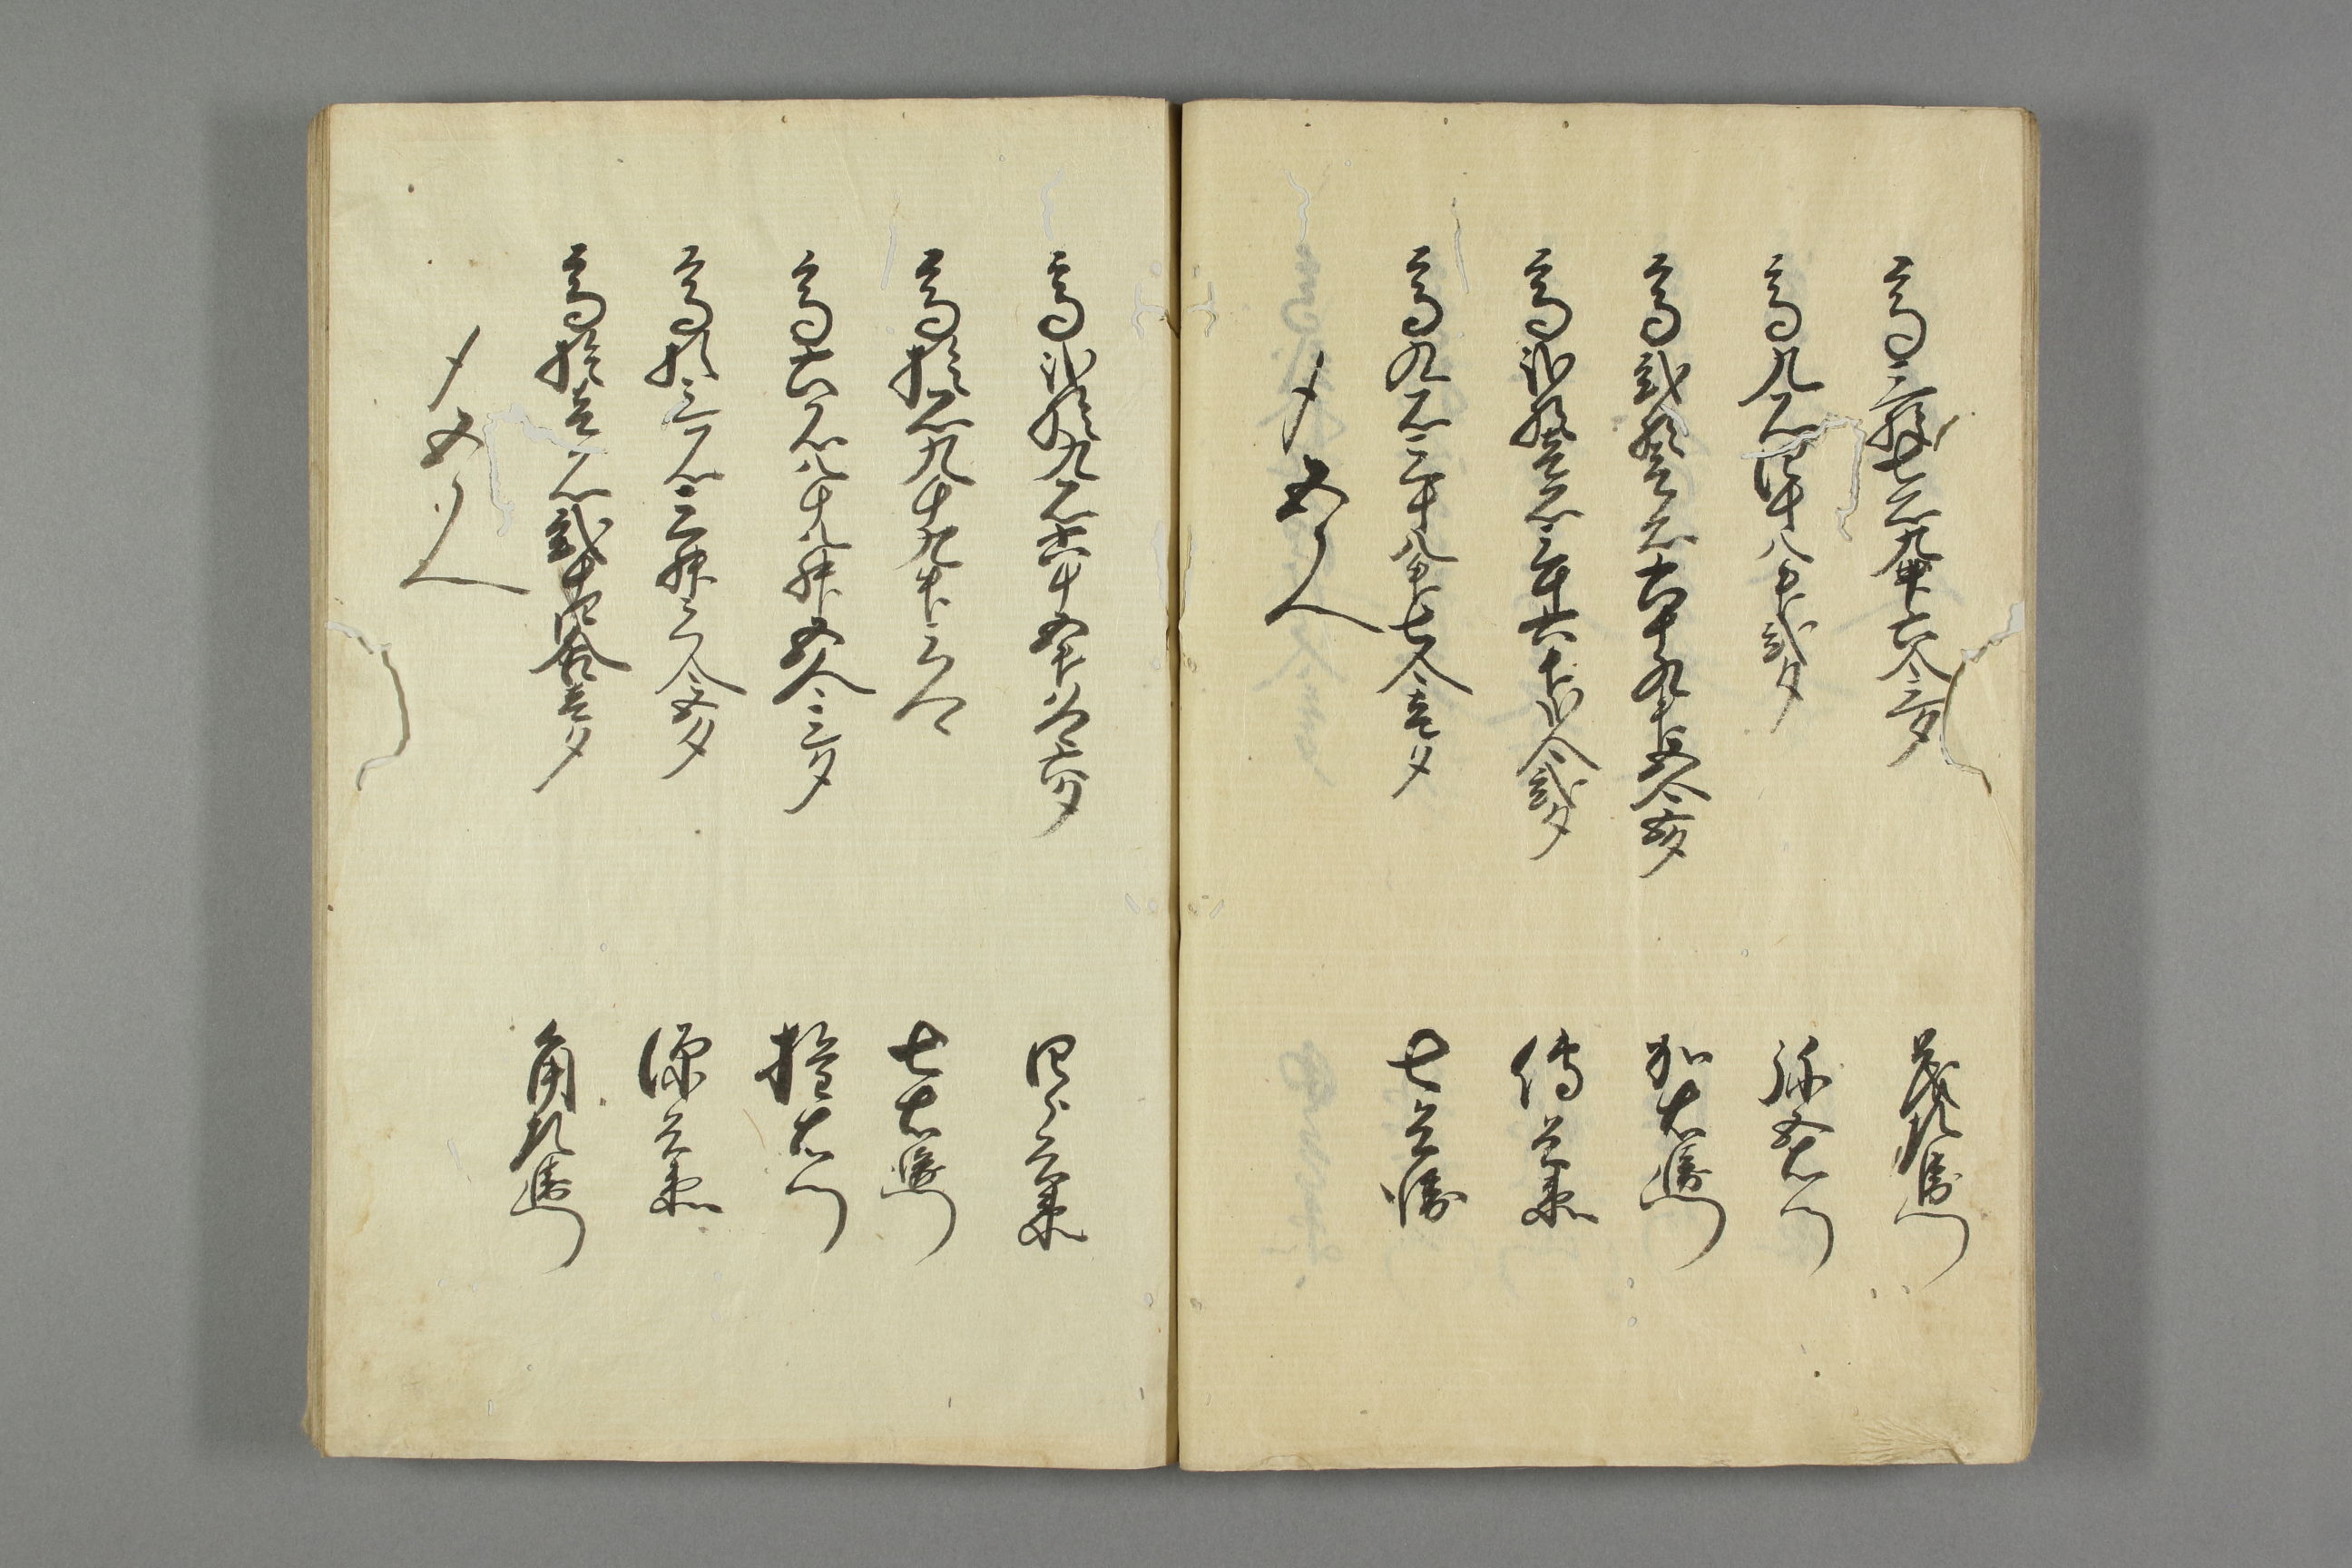 高三拾七石九斗六合三夕
茂左衛門
高九石四斗八升弐夕
弥五右衛門
高弐拾壱石六斗九升五合五夕
加右衛門
高弐拾壱石三斗六升弐合弐夕
傳兵衛
高九石三斗八升七合壱夕
七兵衛
〆五人
高弐拾九石六斗五升
四郎兵衛
高拾石九斗九升三合
七右衛門
高六石八斗八升五合三夕
権右衛門
高拾三石三升三合五夕
源兵衛
高拾壱石弐斗四合壱夕
角左衛門
〆五人